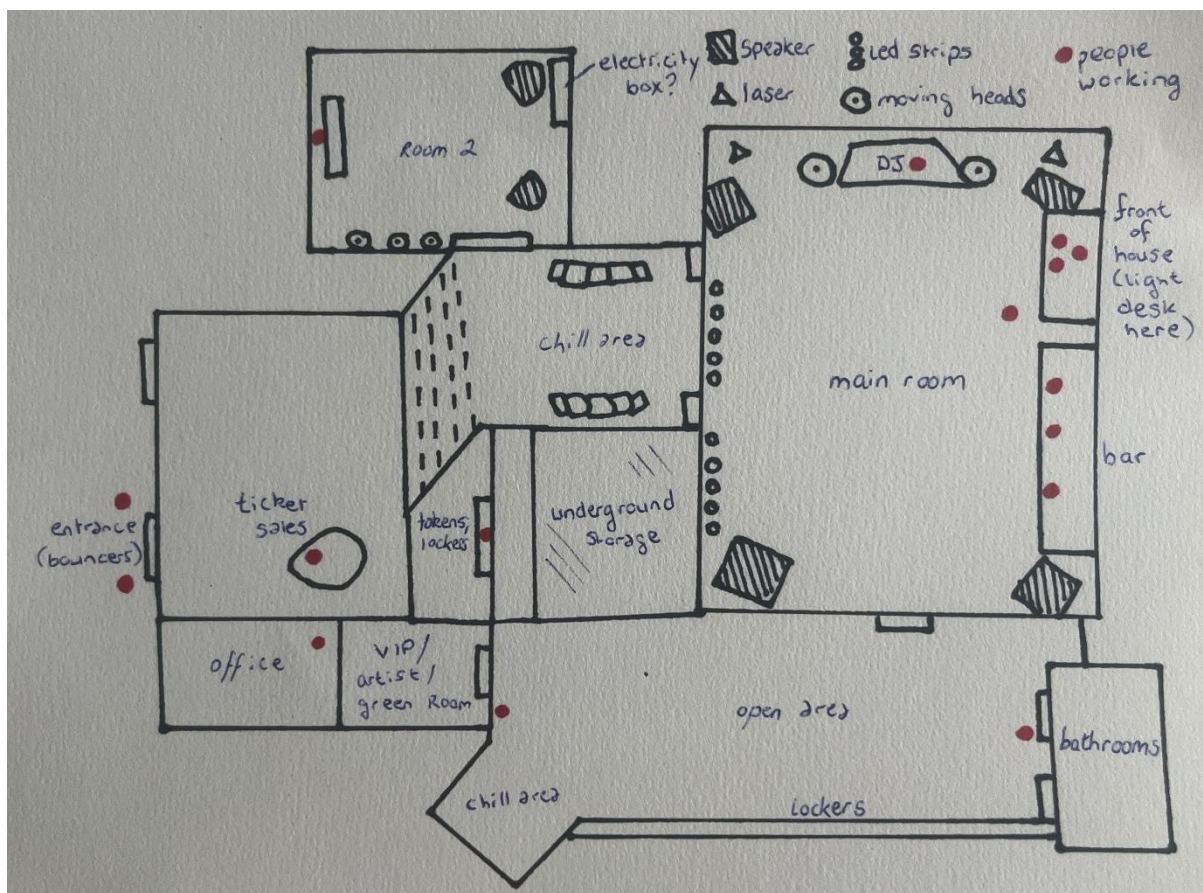 electricity
box?
speaker
laser
Led strips
moving heads
people
working
Room 2
DJ
front
of
house
(light
desk
here)
chill area
main room
bar
ticker
sales
entrance
(bouncers)
tokens,
lockers
underground
storage
office
VIP/
artist/
green Room
open area
bathrooms
chill area
lockers